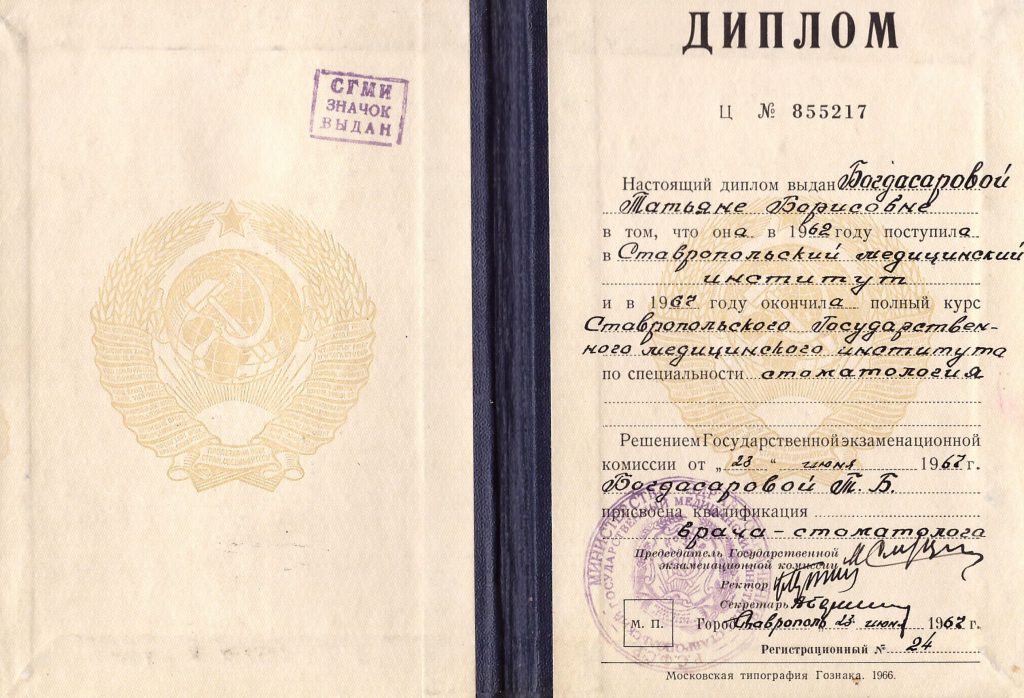 СГМИ
ЗНАЧОК
ВЫДАН
ДИПЛОМ
Ц № 855217
Настоящий диплом выдан Богдасаровой
Татьяне Борисовне
в том, что она в 1962 году поступила
в Ставропольский медицинский
институт
и в 1967 году окончила полный курс
Ставропольского Государствен-
ного медицинского института
по специальности стоматология
Решением Государственной экзаменационной
комиссии от „23“ июня 1967 г.
Богдасаровой Т. Б.
присвоена квалификация
врача-стоматолога
Председатель Государственной
экзаменационной комиссии
Ректор
Секретарь
М. П. Город Ставрополь 23 июня 1967 г.
Регистрационный № 24
Московская типография Гознака. 1966.